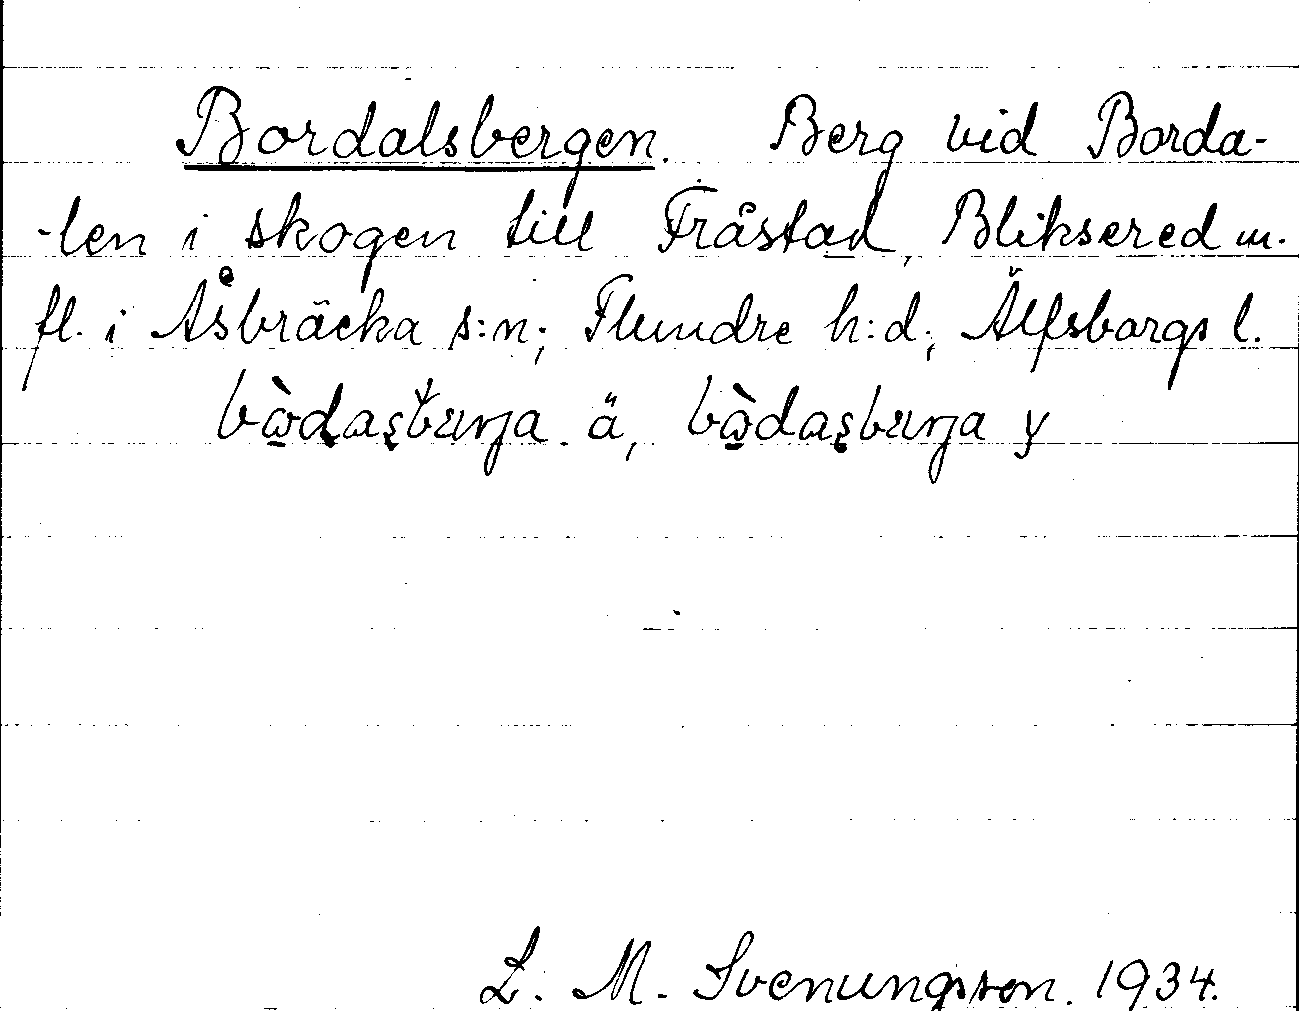 Bordalsbergen. Berg vid Borda-
-len i skogen till Fråstad, Bliksered m.
fl. i Åsbräcka s:n; Flundre h:d; Älfsborgs l.
ä, y
L. M. Svenungsson. 1934.